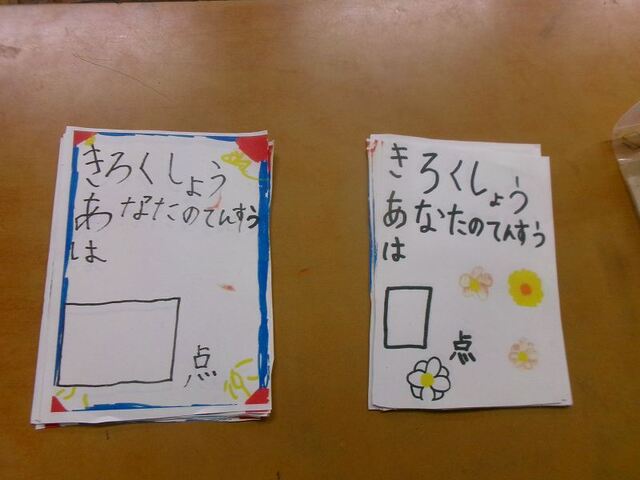 きろくしょう
あなたのてんすう
は
点
きろくしょう
あなたのてんすう
は
点